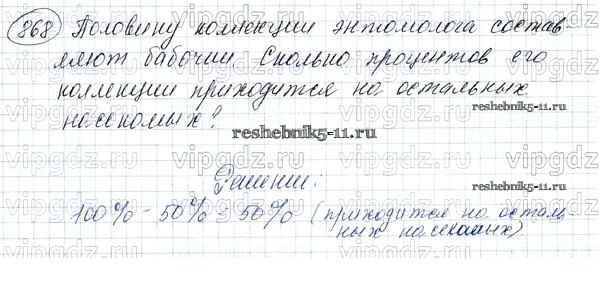 868 Половину коллекции энтомолога состав-
ляют бабочки. Сколько процентов его
коллекции приходится на остальных
насекомых?
reshebnik5-11.ru
reshebnik5-11.ru
Решение:
reshebnik5-11.ru
100% - 50% = 50% (приходится на осталь-
ных насекомых)
vipgdz.ru